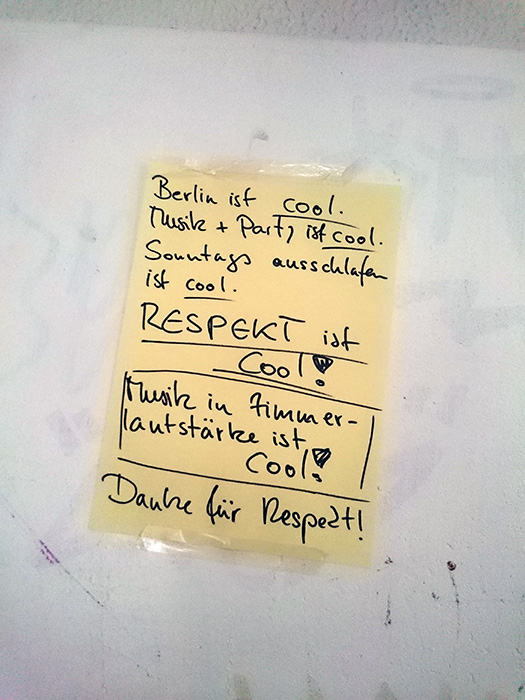 Berlin ist cool.
Musik + Party ist cool.
Sonntags ausschlafen
ist cool.
RESPEKT ist
cool!
Musik in Zimmer-
lautstärke ist
cool!
Danke für Respekt!